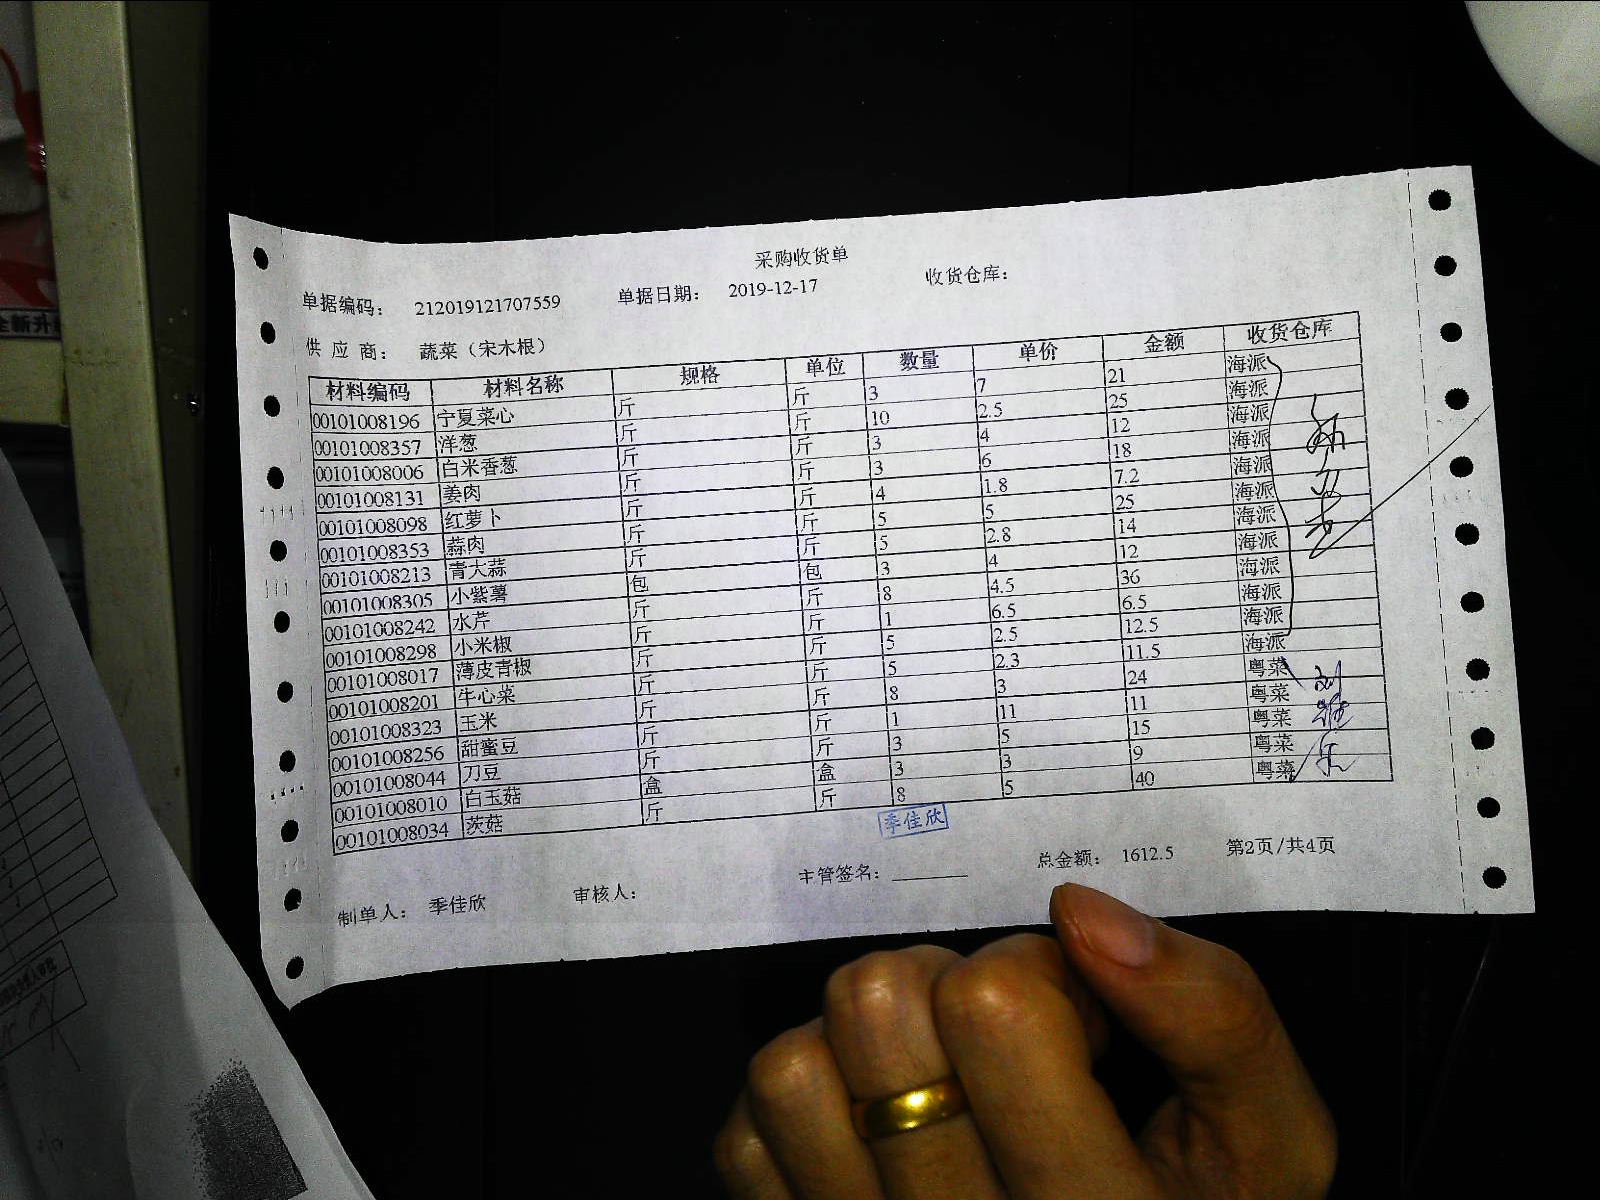 采购收货单
单据编码： 212019121707559 单据日期： 2019-12-17 收货仓库：
供 应 商： 蔬菜（宋木根）
材料编码 材料名称 规格 单位 数量 单价 金额 收货仓库
00101008196 宁夏菜心 斤 斤 3 7 21 海派
00101008357 洋葱 斤 斤 10 2.5 25 海派
00101008006 白米香葱 斤 斤 3 4 12 海派
00101008131 姜肉 斤 斤 3 6 18 海派
00101008098 红萝卜 斤 斤 4 1.8 7.2 海派
00101008353 蒜肉 斤 斤 5 5 25 海派
00101008213 青大蒜 斤 斤 5 2.8 14 海派
00101008305 小紫薯 包 包 3 4 12 海派
00101008242 水芹 斤 斤 8 4.5 36 海派
00101008298 小米椒 斤 斤 1 6.5 6.5 海派
00101008017 薄皮青椒 斤 斤 5 2.5 12.5 海派
00101008201 牛心菜 斤 斤 5 2.3 11.5 海派
00101008323 玉米 斤 斤 8 3 24 粤菜
00101008256 甜蜜豆 斤 斤 1 11 11 粤菜
00101008044 刀豆 斤 斤 3 5 15 粤菜
00101008010 白玉菇 盒 盒 3 3 9 粤菜
00101008034 茨菇 斤 斤 8 5 40 粤菜
季佳欣
制单人： 季佳欣 审核人： 主管签名： 总金额： 1612.5 第2页/共4页